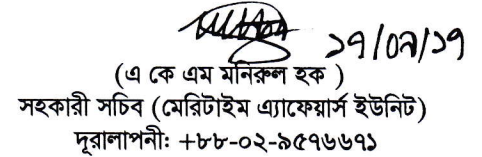 ১৭/০৭/১৭
(এ কে এম মনিরুল হক )
সহকারী সচিব (মেরিটাইম এ্যাফেয়ার্স ইউনিট)
দূরালাপনীঃ +৮৮-০২-৯৫৭৬৬৭১